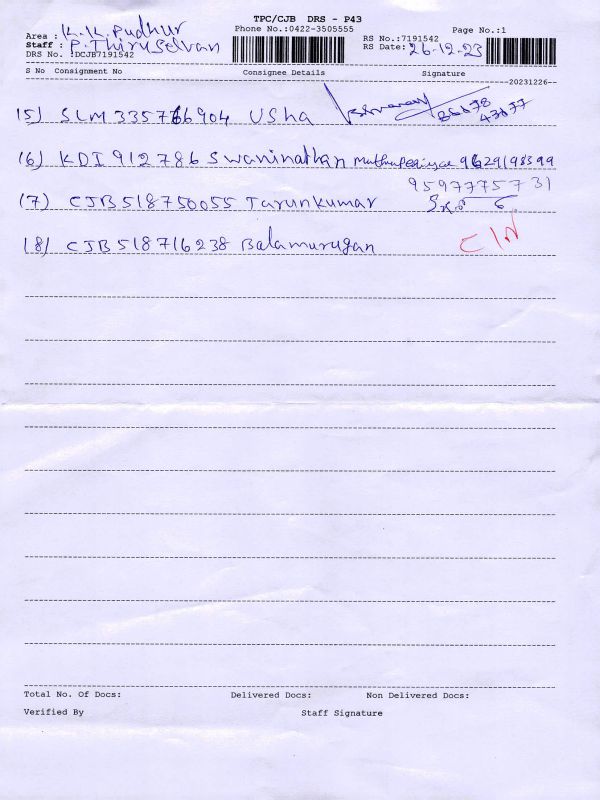 TPC/CJB DRS - P43
Area : K.K. Pudhur Phone No.:0422-3505555 Page No.:1
Staff : P. Thiruselvan RS No.:7191542
DRS No. :DCJB7191542 RS Date: 26-12-23
S No Consignment No Consignee Details Signature
--20231226--
(5) SLM 335766904 Usha 86678
43077
(6) KDI 912786 Swaninathan Muthuperiyar 9629198399
9597775731
(7) CJB518750055 Tarunkumar
(8) CJB518716238 Balamurugan
Total No. Of Docs: Delivered Docs: Non Delivered Docs:
Verified By Staff Signature